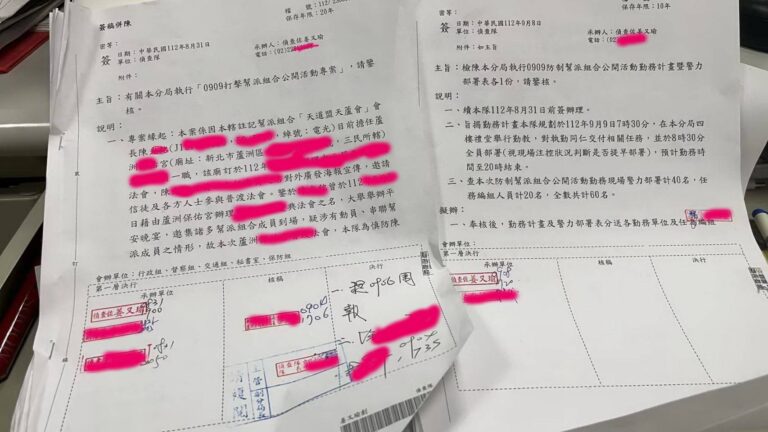 簽稿併陳
檔號：112/
保存年限：20年
密等：
簽 日期：中華民國112年8月31日
單位：偵查隊
承辦人：偵查佐姜又瑜
電話：(02)2
附件：
主旨：有關本分局執行「0909打擊幫派組合公開活動專案」，請鑒
核。
說明：
一、專案緣起：本案係因本轄註記幫派組合「天道盟天蘆會」會
長陳 綽號：電光)目前擔任蘆
洲 宮(廟址：新北市蘆洲區 三民所轄)
一職，該廟訂於112年 對外廣發海報宣傳，邀請
信徒及各方人士參與普渡法會。鑒於 曾於112年
日藉由蘆洲保佑宮辦理 與法會之名，大舉舉辦平
安晚宴，邀集諸多幫派組合成員到場，疑涉有動員、串聯幫
派成員之情形，故本次蘆洲 法會，本隊為慎防陳
會辦單位：行政組、督察組、交通組、秘書室、保防組
第一層決行
承辦單位
核稿
決行
偵查佐姜又瑜
0831
1700
偵查隊
姜又瑜創
偵查隊
保存年限：10年
密等：
簽 日期：中華民國112年9月8日
單位：偵查隊
承辦人：偵查佐姜又瑜
電話：(02)
附件：如主旨
主旨：檢陳本分局執行0909防制幫派組合公開活動勤務計畫暨警力
部署表各1份，請鑒核。
說明：
一、續本隊112年8月31日前簽辦理。
二、旨揭勤務計畫本隊規劃於112年9月9日7時30分，在本分局四
樓禮堂舉行勤教，對執勤同仁交付相關任務，並於8時30分
全員部署(視現場注控狀況判斷是否提早部署)，預計勤務時
間至20時結束。
三、查本次防制幫派組合公開活動勤務現場警力部署計40名，任
務編組人員計20名，全數共計60名。
擬辦：
一、奉核後，勤務計畫及警力部署表分送各勤務單位及任務編組
會辦單位：
第一層決行
承辦單位
核稿
決行
偵查佐姜又瑜